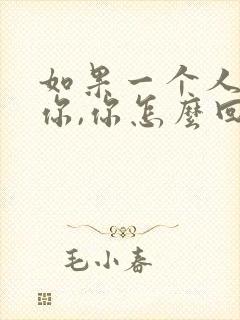 如果一个人
你,你怎麽回
毛小春